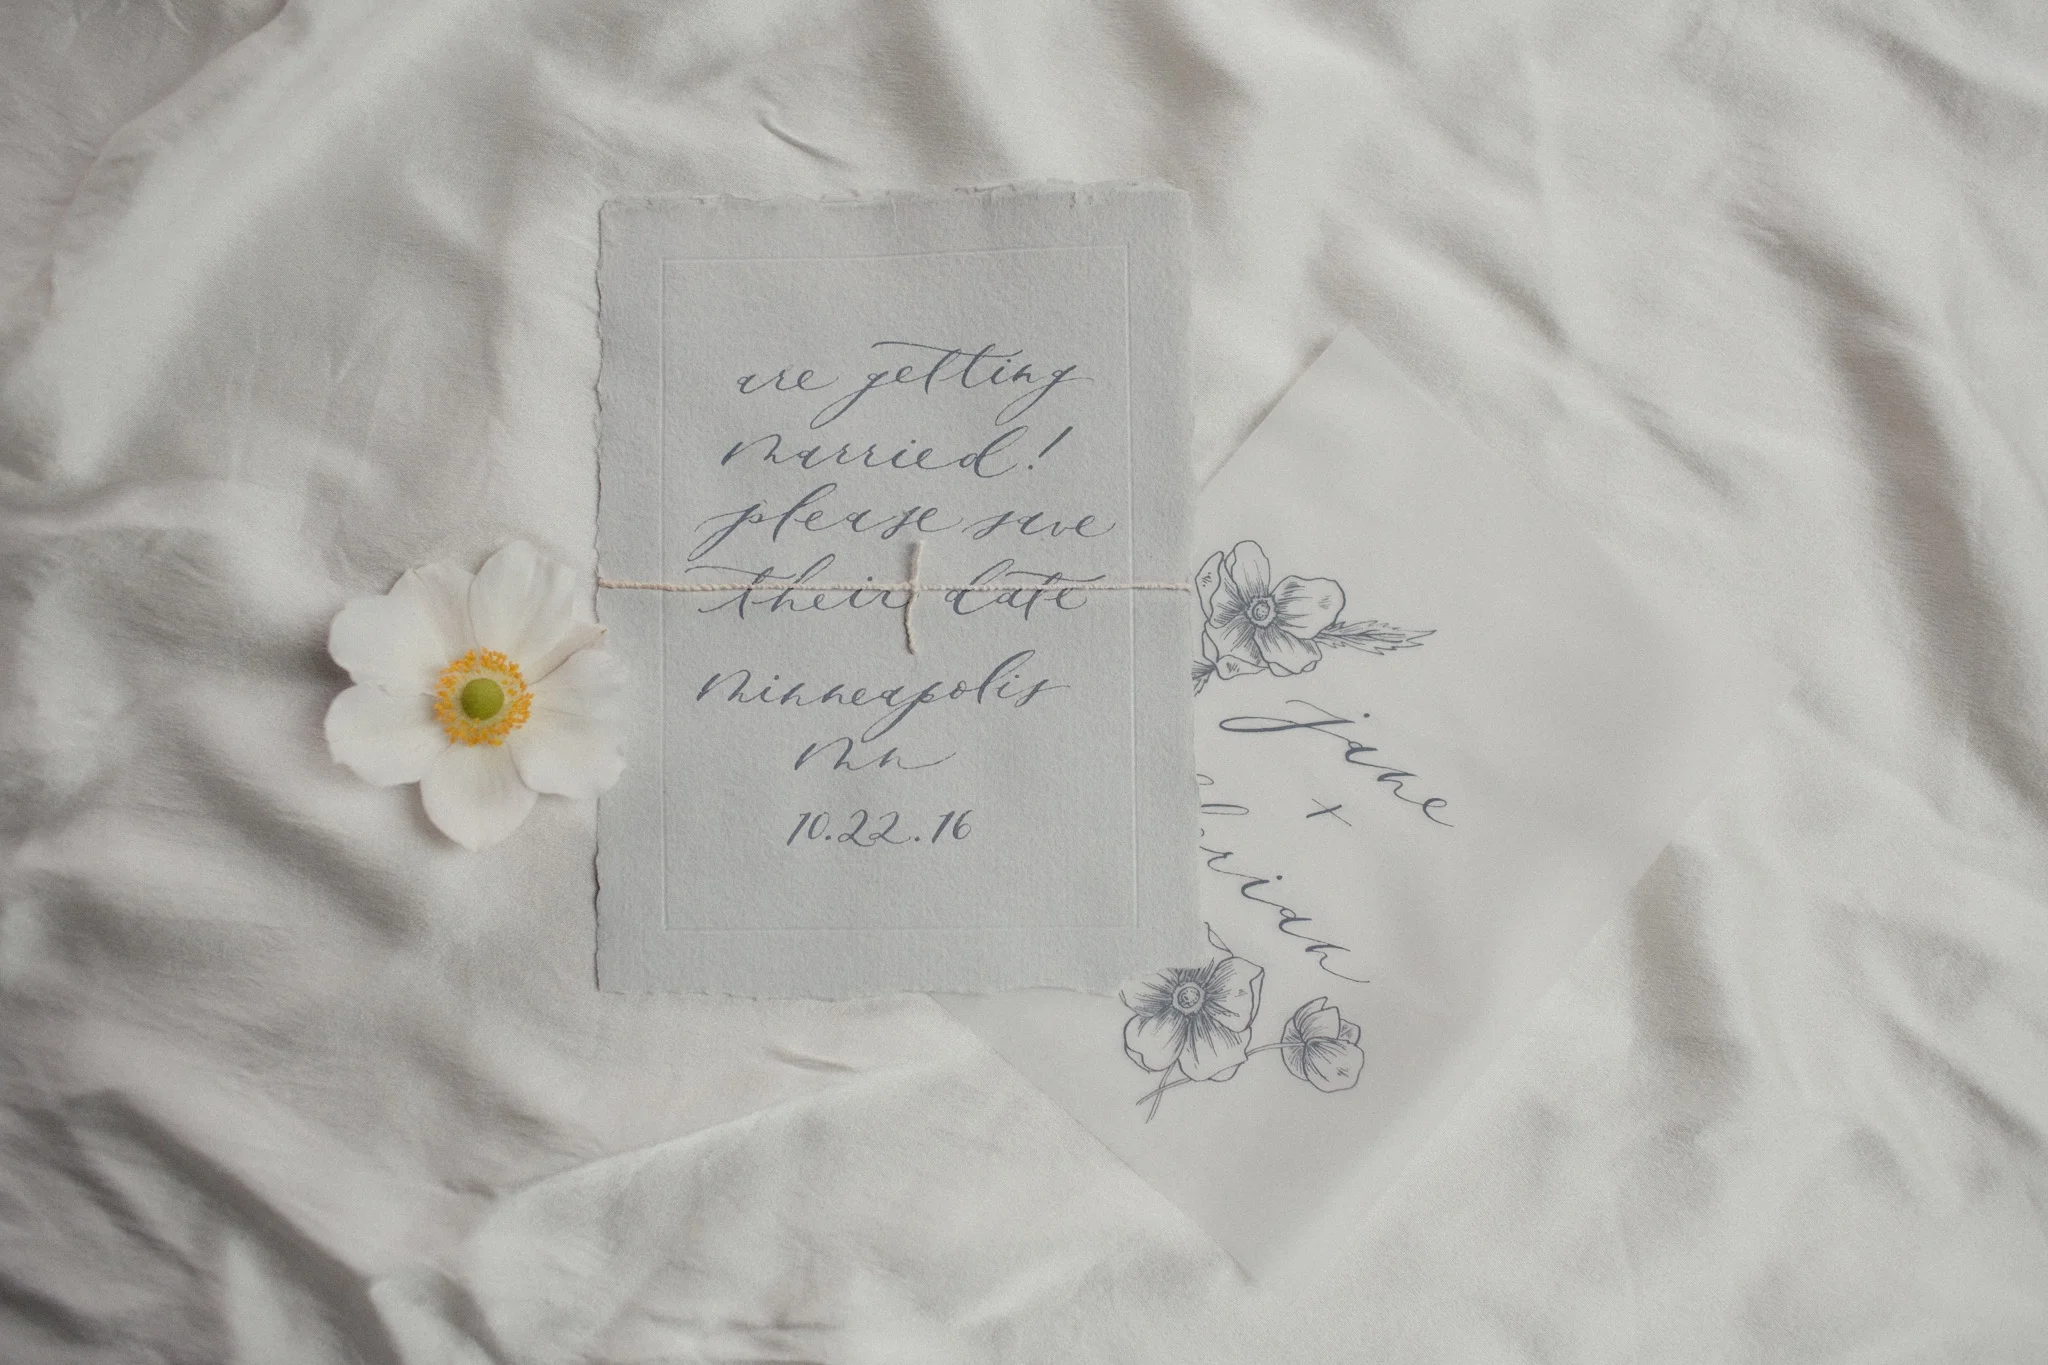 are getting
married!
please save
their date
minneapolis
mn
10.22.16
jane
x